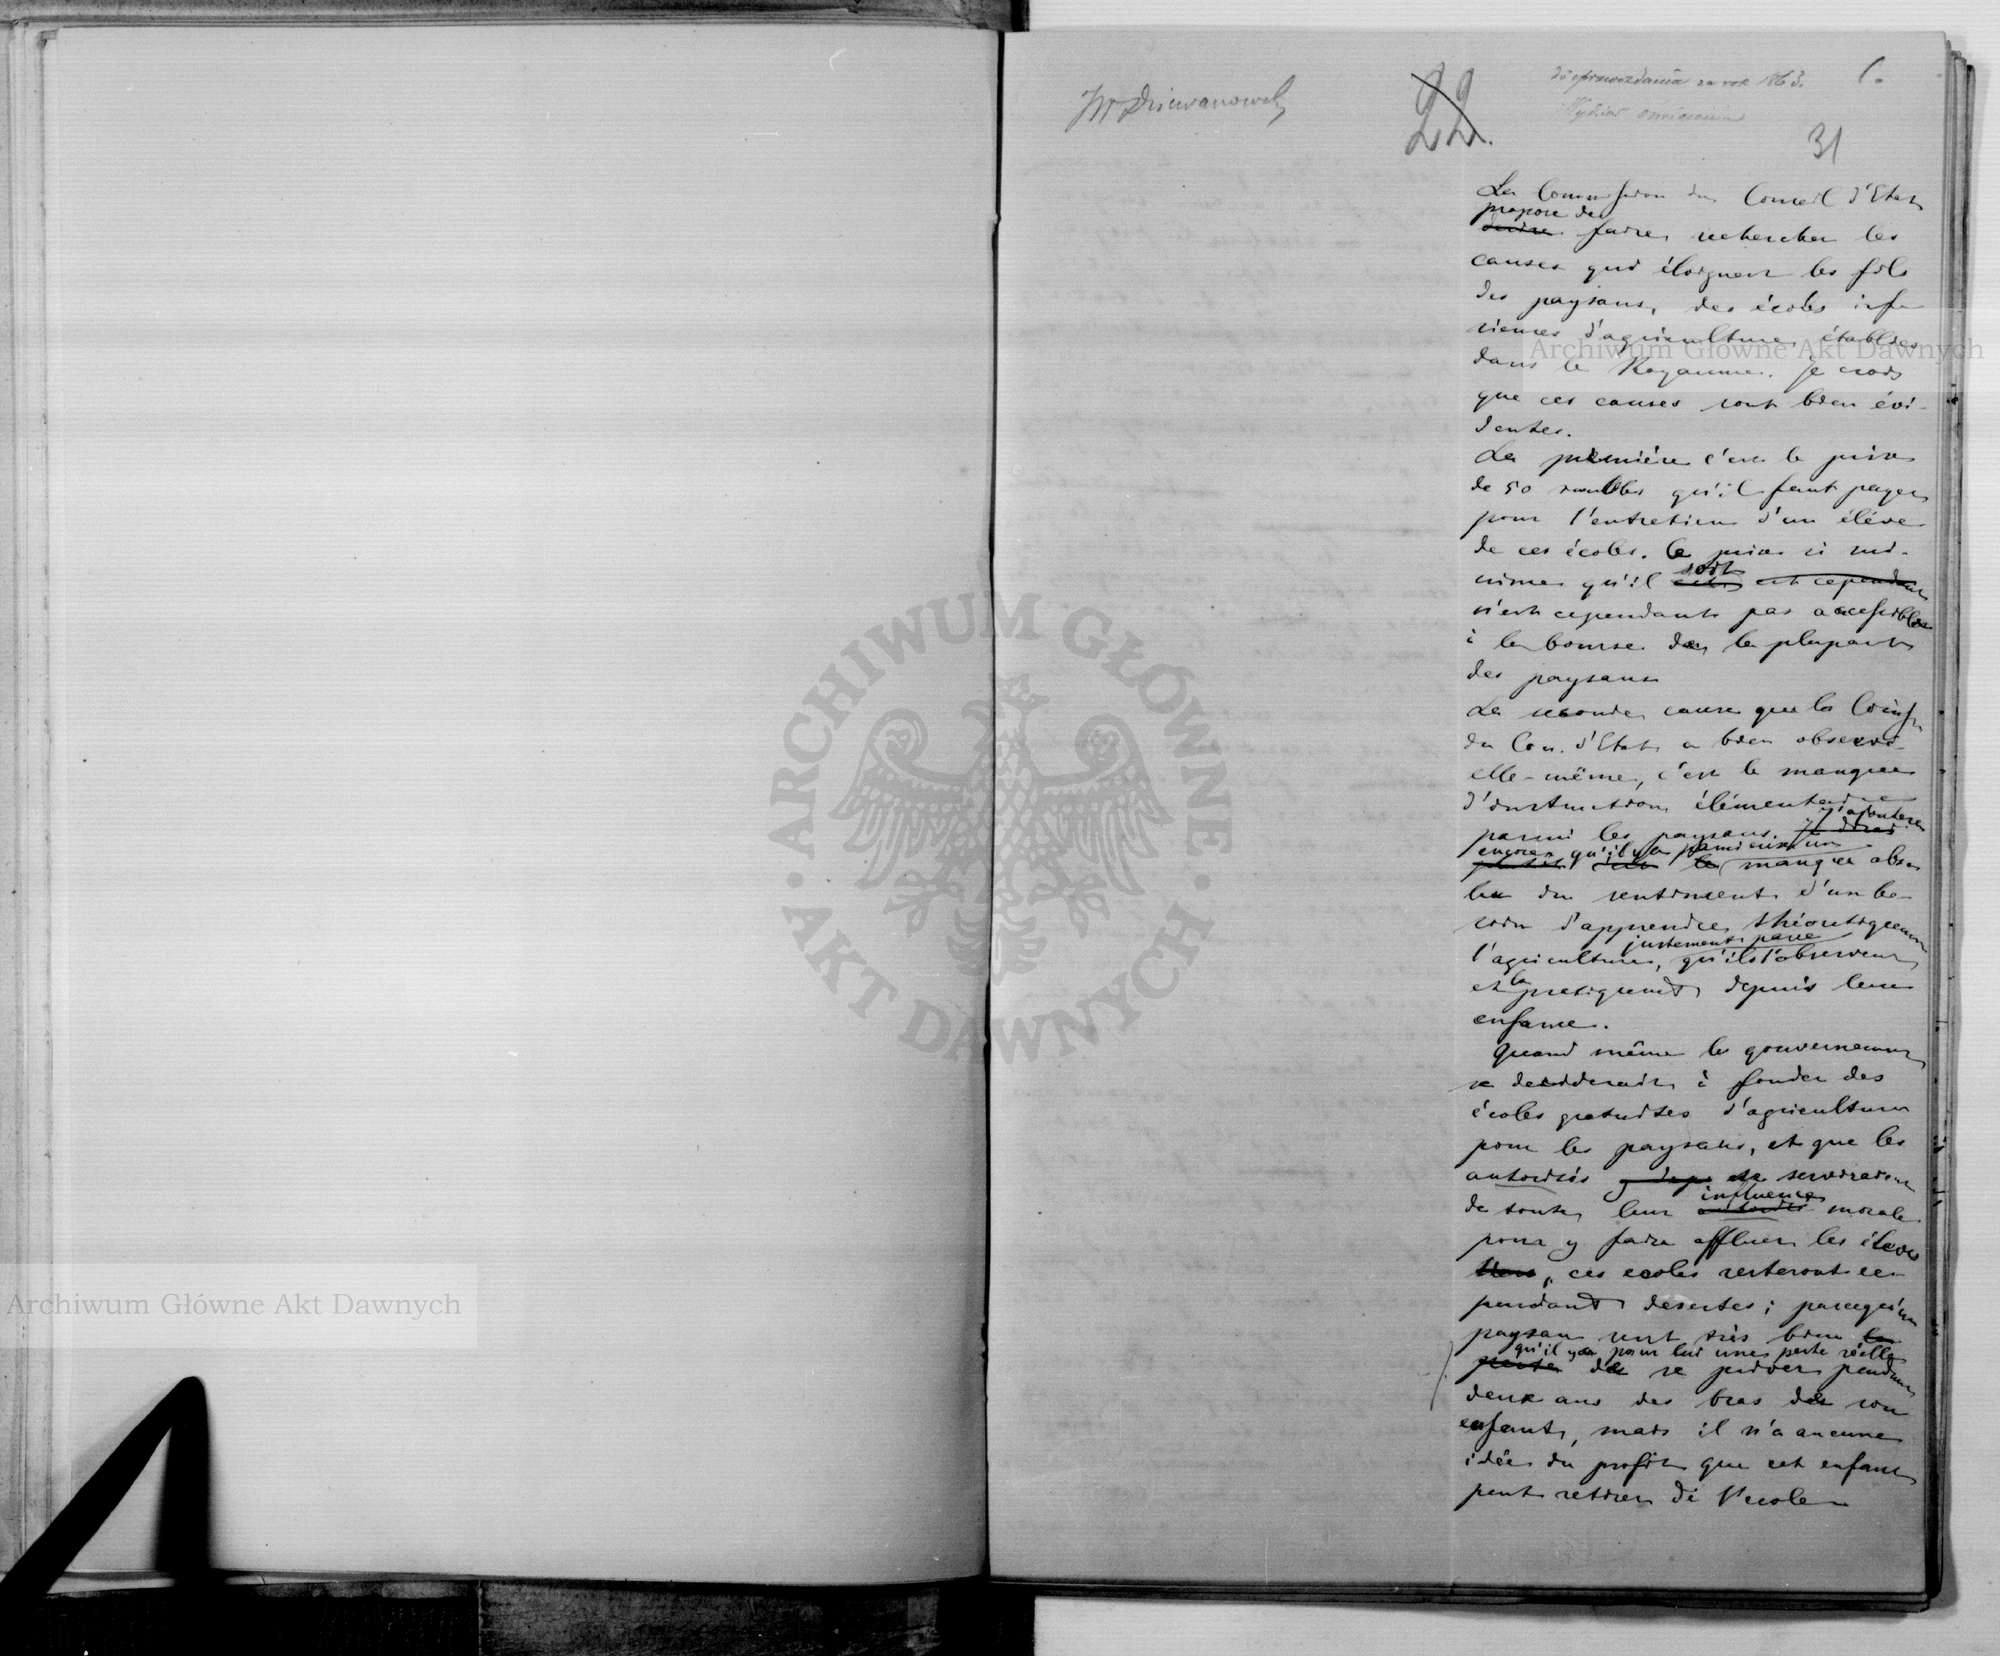 do sprawozdania za rok 1863.
Wydział oświecenia
22.
31
La Commission du Conseil d'Etat
propose de
faire rechercher les
causes qui éloignent les fils
des paysans, des écoles infe
rieures d'agriculture établies
dans le Royaume. Je crois
que ces causes sont bien évi-
dentes.
La première c'est le prix
de 50 roubles qu'il faut payer
pour l'entretien d'un élève
de ces écoles. Ce prix si mi-
nime qu'il soit est cependant
n'est cependant pas accessible
à la bourse de la plupart
des paysans
La seconde cause que la Comis.
du Con. d'Etat a bien observé
elle-même, c'est le manque
d'instruction élémentaire
parmi les paysans. Je dirai j'ajouterai
encore qu'il y a parmi eux un
plutôt le manque abso
lu du sentiment d'un be
soin d'apprendre théoretiquement
justement parce
l'agriculture, qu'ils l'observent
et la pratiquent depuis leur
enfance.
Quand même le gouvernement
se deciderait à fonder des
écoles gratuites d'agriculture
pour les paysans, et que les
autorités se serviraient
influence
de toute leur autorité morale
pour y faire affluer les élèves
ces ecoles resteront ce-
pendant desertes; parcequ'un
paysan sent très bien la
qu'il y a pour lui une perte réelle
perte de se priver pendant
deux ans des bras de son
enfant, mais il n'a aucune
idée du profit que cet enfant
peut retirer de l'ecole
Archiwum Główne Akt Dawnych
Archiwum Główne Akt Dawnych
ARCHIWUM GŁÓWNE
AKT DAWNYCH